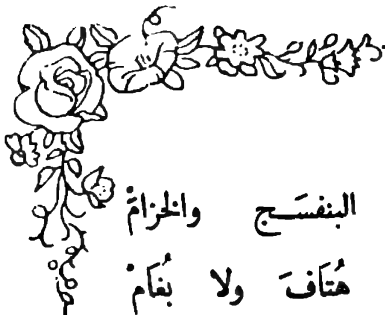 البنفسَج والخزامْ
هُتافَ ولا بُغامْ